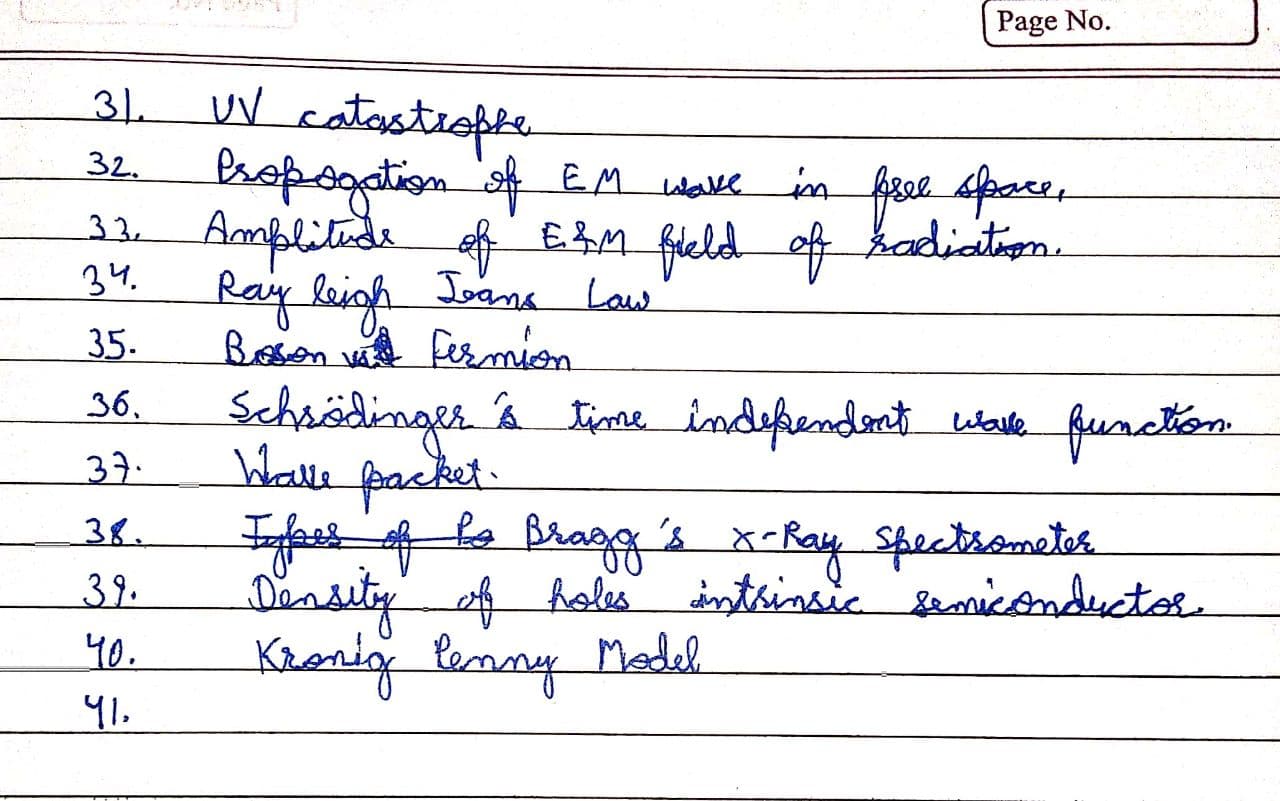 Page No.
31. UV catastrophe
32. Propogation of EM wave in free space,
33. Amplitude of E&M field of radiation.
34. Rayleigh Jeans Law
35. Boson Fermion
36. Schrödinger's time independent wave function.
37. Wave packet.
38. Types of Bragg's X-Ray Spectrometer
39. Density of holes intrinsic semiconductor.
40. Kronig Penny Model
41.